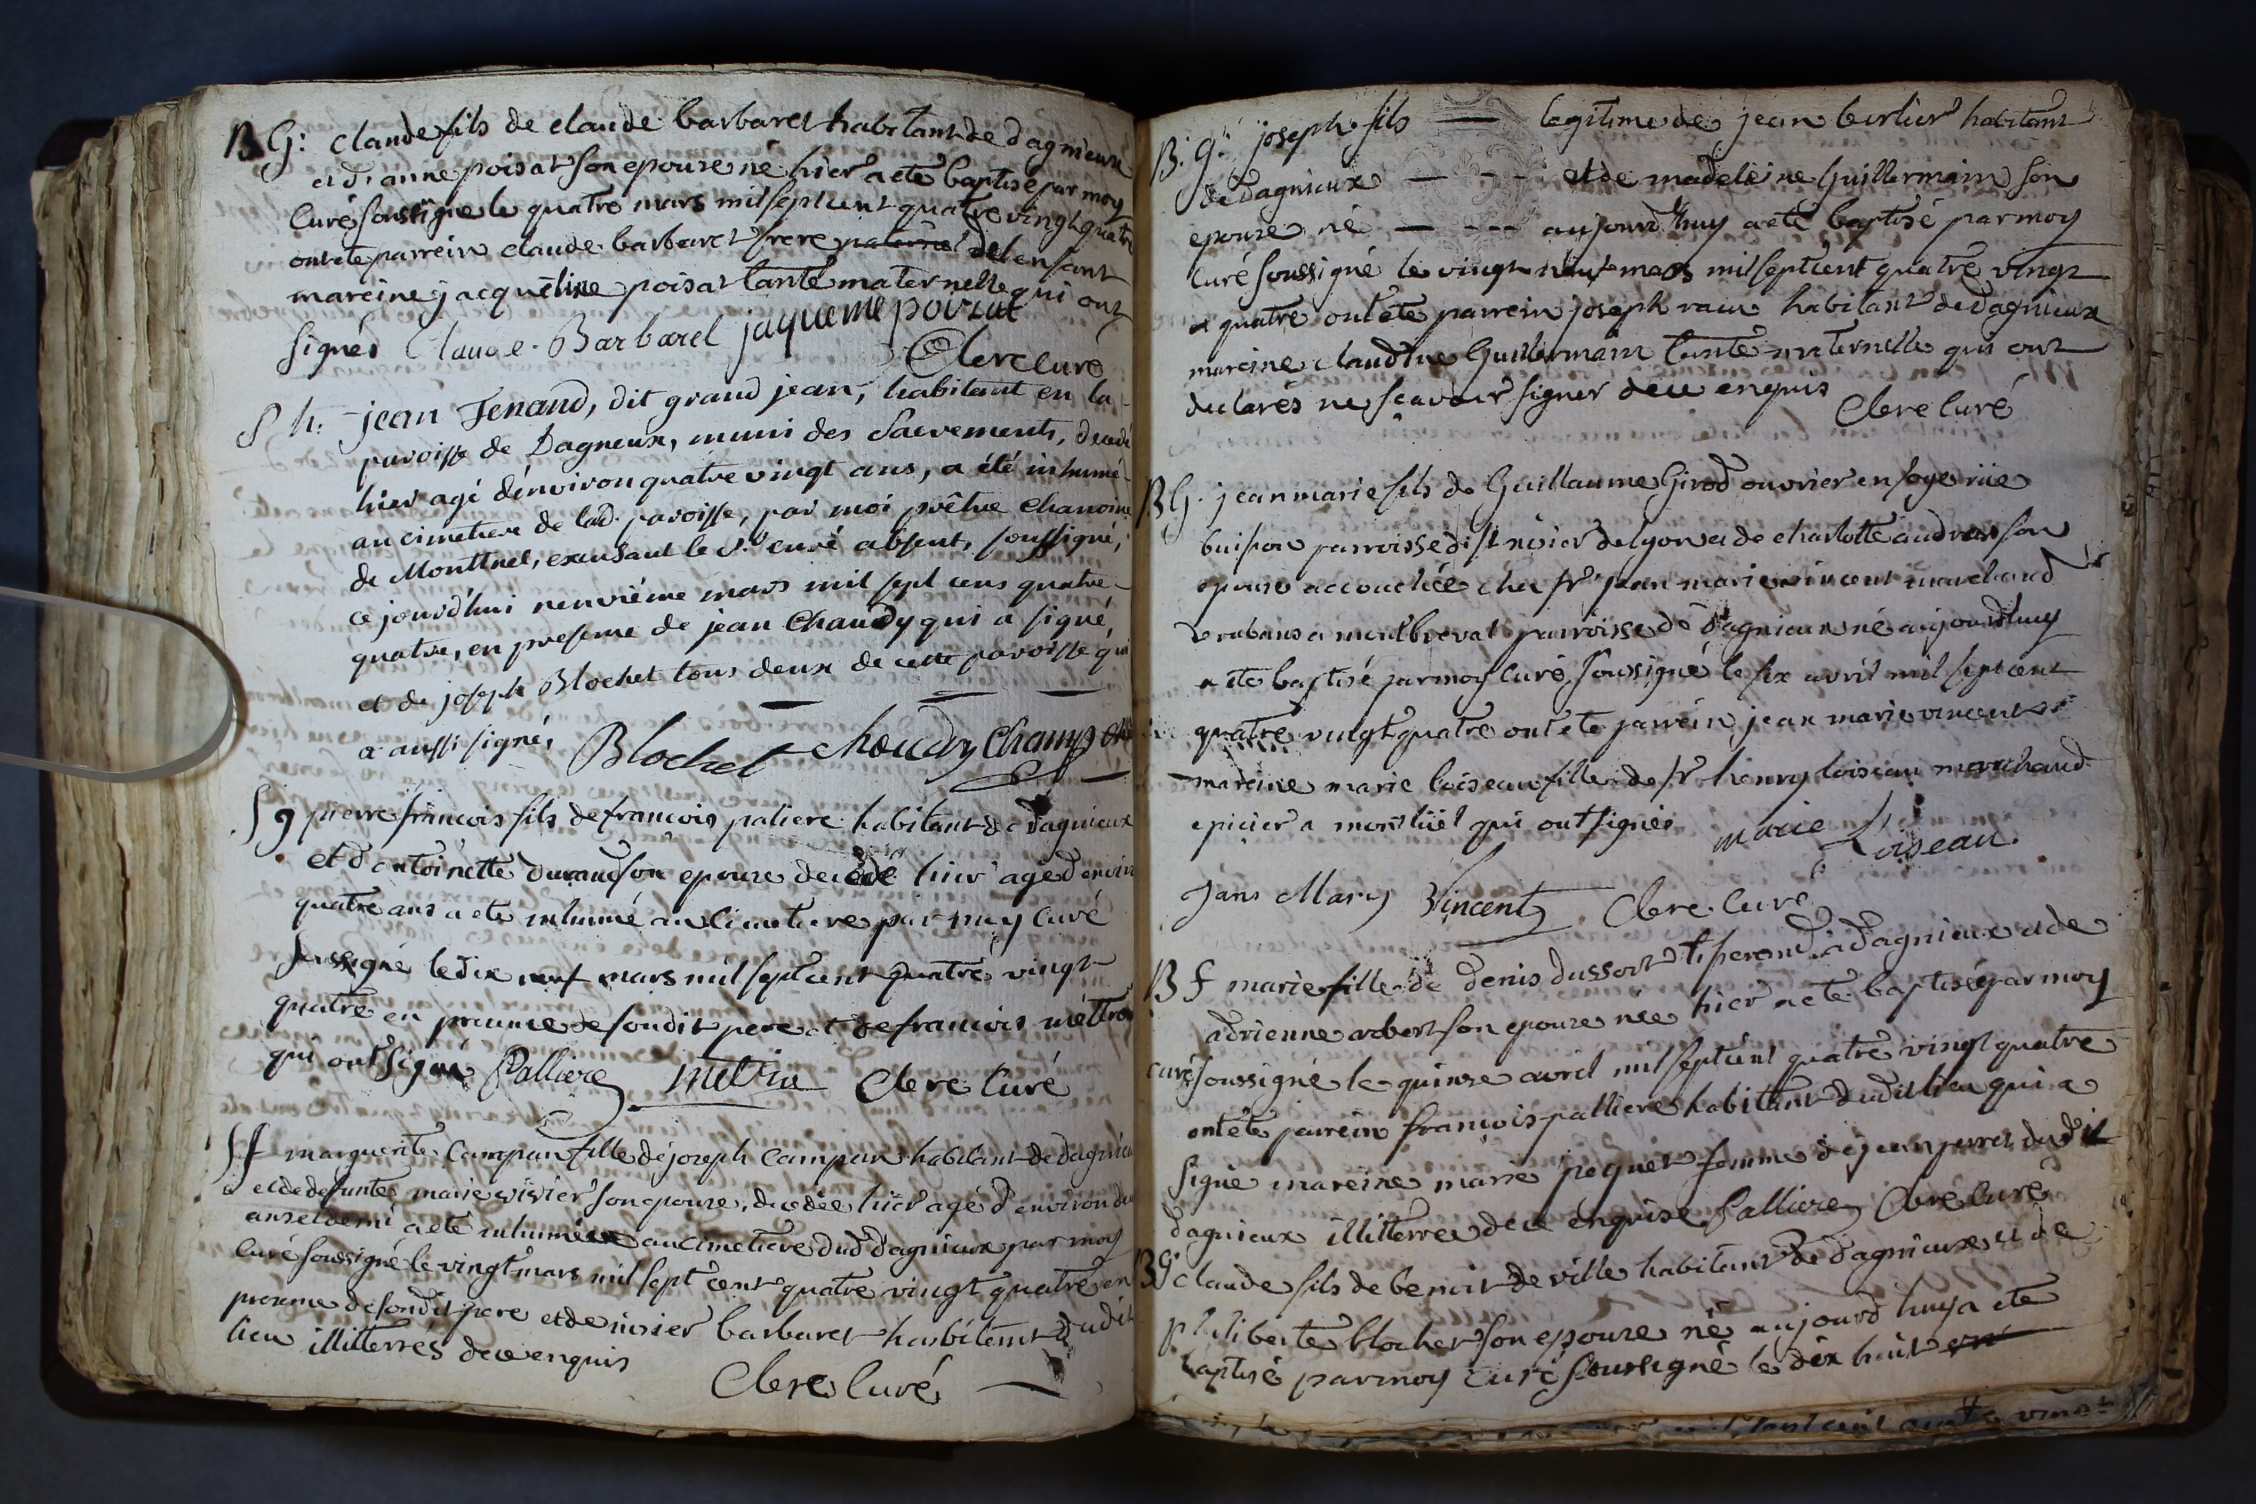 B G: claude fils de claude barbaret habitant de dagnieux
et d'anne poisat son epouse né hier a eté baptisé par moy
Curé soussigné le quatre mars mil sept cent quatre vingt quatre
ont eté parrein claude barbaret frere paternel de l'enfant
mareine jacqueline poisat tante maternelle qui ont
signés Claude Barbarel jaqueme poizat
Clerc curé
S h. jean Tenand, dit grand jean, habitant en la
paroisse de Dagneux, muni des Sacrements, decedé
hier agé d'environ quatre vingt ans, a été inhumé
au cimetiere de lad. paroisse, par moi prêtre chanoine
de Montluel, excusant le Sr. curé absent, soussigné,
ce jourd'hui neuvième mars mil sept cens quatre
quatre, en presence de jean Chaudy qui a signé,
et de joseph Blochet tous deux de cette paroisse qui
a aussi signé, Blochet choudy
S g pierre francois fils de francois paliere habitant de dagnieux
et d'antoinette durand son epouse decedé hier agé d'environ
quatre ans a eté inhumé au cimetiere par moy Curé
Soussigné le dix neuf mars mil sept cent quatre vingt
quatre en presence de sondit pere et de francois mettra
qui ont signé Palliere metra Clerc Curé
S f marguerite Campan fille de joseph Campan habitant de dagnieux
et de defunte marie nisier son epouse, decedée hier agé d'environ
ans et demi a eté inhumée au cimetiere dud dagnieux par moy
Curé soussigné le vingt mars mil sept cent quatre vingt quatre en
presence de sondit pere et de nisier barbaret habitant dudit
lieu illitterrés de ce enquis
Clerc Curé
B. g. joseph fils legitime de jean berlier habitant
de dagnieux et de madeleine Guillermain son
epouse né aujourd'huy a eté baptisé par moy
Curé soussigné le vingt neuf mars mil sept cent quatre vingt
quatre ont eté parrein joseph habitant de dagnieux
mareine claudine Guillermain tante maternelle qui ont
declarés ne sçavoir signer de ce enquis
Clerc Curé
B G. jean marie fils de Guillaume Girod ouvrier en soye rüe
buisson parroisse de st nisier de lyon et de charlotte audras son
epouse accouchée chez sr jean marie vincent marchand
rubans a parroisse de dagnieux né aujourd'huy
a eté baptisé par moy Curé soussigné le six avril mil sept cent
quatre vingt quatre ont eté parrein jean marie vincent
mareine marie loiseau fille de sr henry loiseau marchand
epicier a montlüel qui ont signés marie Loiseau
Jans Mary Vincent Clerc Curé
B f marie fille de denis dussort a dagnieux et de
adrienne robert son epouse née hier a eté baptisé par moy
curé soussigné le quinze avril mil sept cent quatre vingt quatre
ont eté parrein francois palliere habitant dudit lieu qui a
signé mareine marie poquet femme de jean perret dudit
dagnieux illitterrée de ce enquise Palliere Clerc Curé
B g claude fils de benoit deville habitant de dagnieux et de
philiberte blochet son epouse né aujourd'huy a eté
baptisé par moy curé soussigné le dix huit